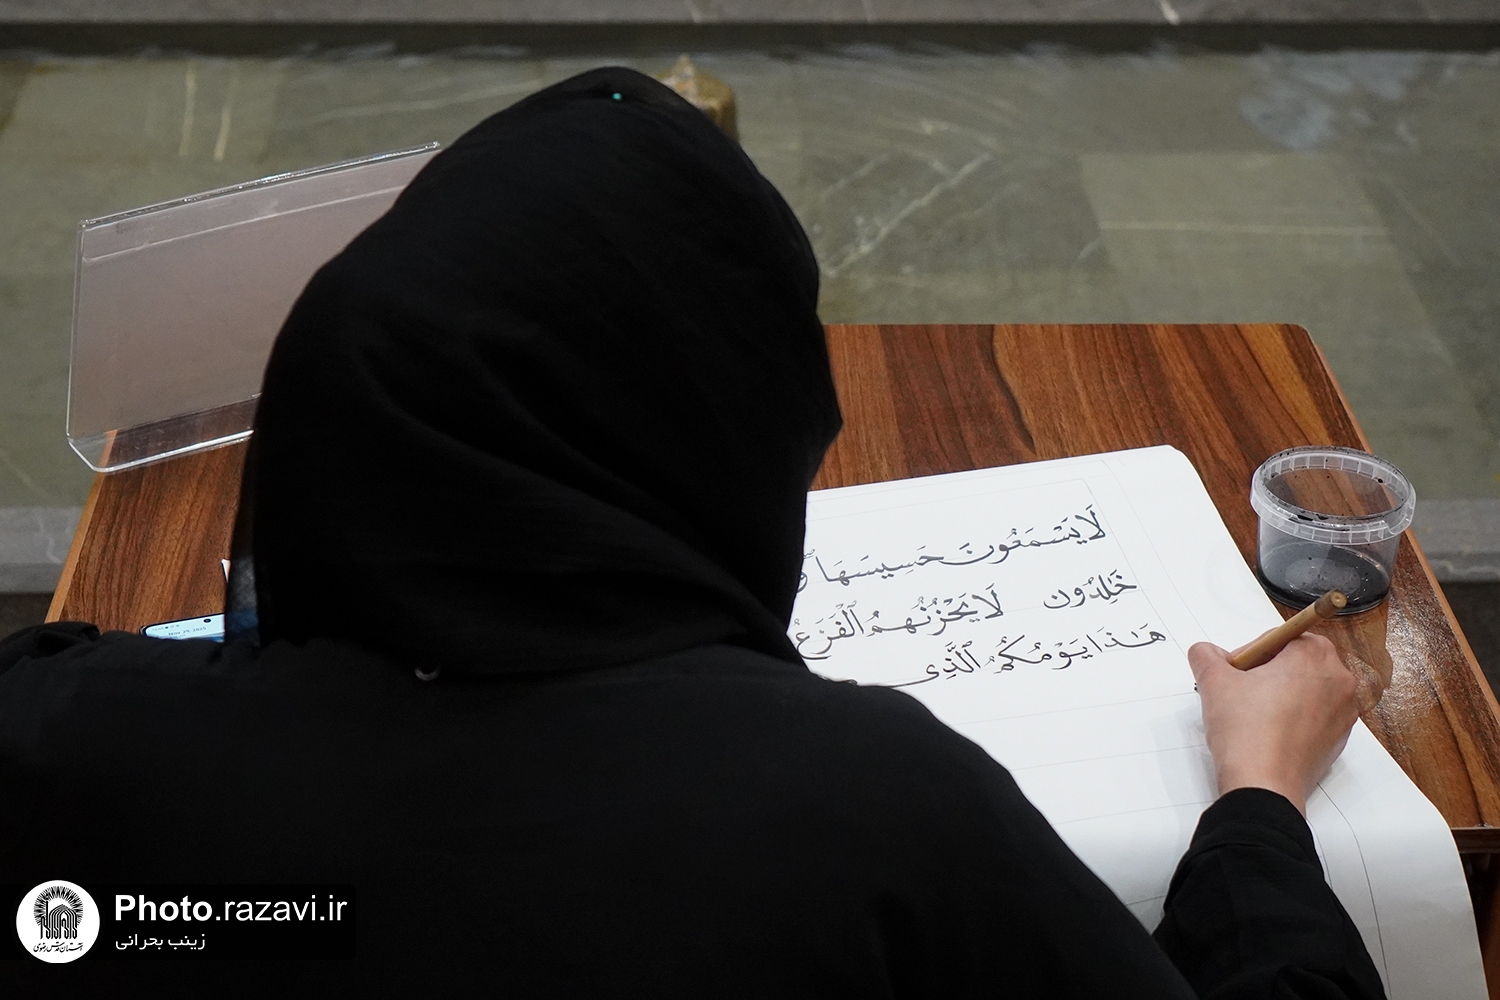 لَا يَسْمَعُونَ حَسِيسَهَا
خَٰلِدُونَ لَا يَحْزُنُهُمُ ٱلْفَزَعُ
هَٰذَا يَوْمُكُمُ ٱلَّذِى
Photo.razavi.ir
زینب بحرانی
آستان قدس رضوی